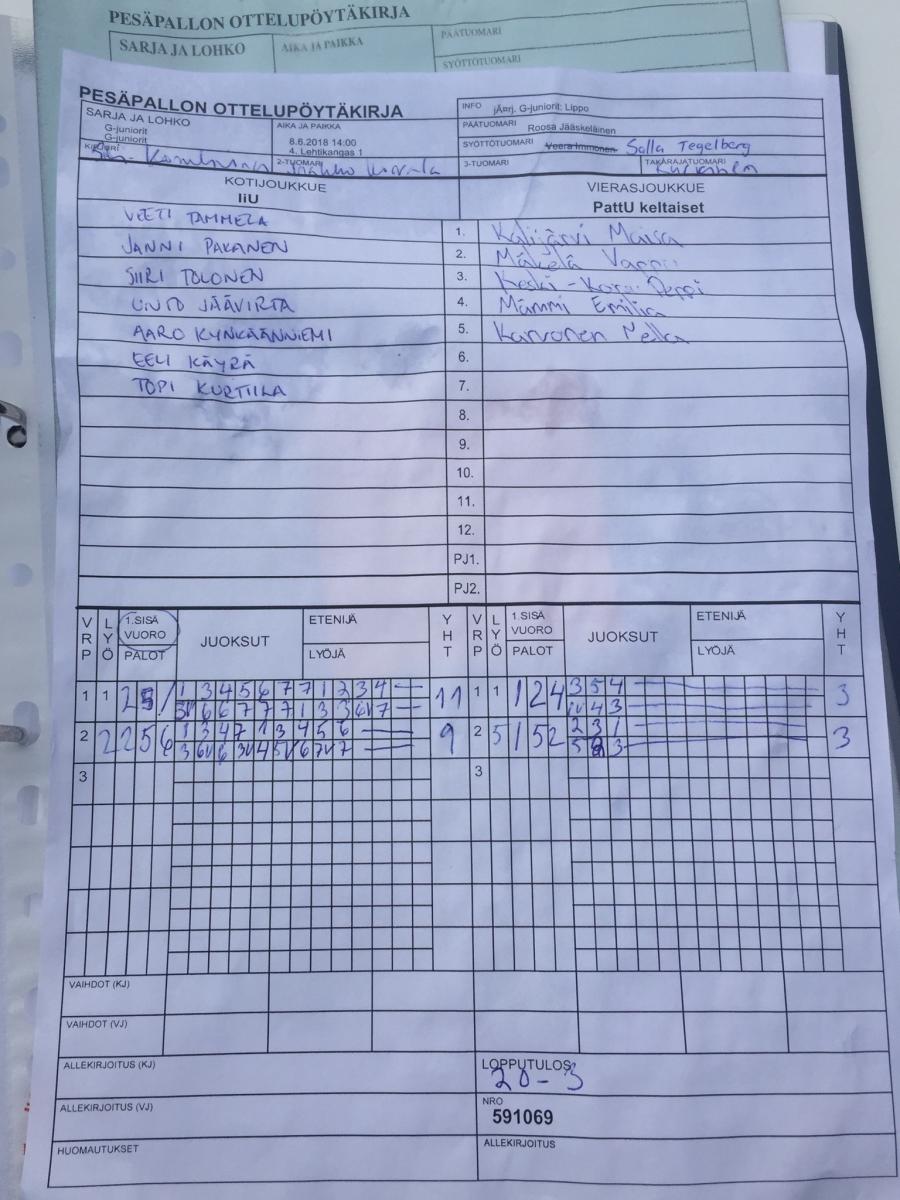 PESÄPALLON OTTELUPÖYTÄKIRJA
SARJA JA LOHKO
AIKA JA PAIKKA
PÄÄTUOMARI
SYÖTTÖTUOMARI
PESÄPALLON OTTELUPÖYTÄKIRJA
SARJA JA LOHKO
G-juniorit
G-juniorit
AIKA JA PAIKKA
8.6.2018 14:00
4. Lehtikangas 1
INFO jÄnrj. G-juniorit: Lippo
PÄÄTUOMARI Roosa Jääskeläinen
SYÖTTÖTUOMARI Veera Immonen Salla Tegelberg
KIRJURI
2-TUOMARI
3-TUOMARI
TAKARAJATUOMARI
KOTIJOUKKUE
IiU
VIERASJOUKKUE
PattU keltaiset
VEETI TAMMELA 1. Kalijärvi Maisa
JANNI PAKANEN 2. Mäkelä
SIIRI TOLONEN 3. Keski-
UNTO JÄÄVIRTA 4. Mämmi Emilia
AARO KYNKÄÄNNIEMI 5. Karvonen Nella
EELI KÄYRÄ 6.
TOPI KURTIILA 7.
8.
9.
10.
11.
12.
PJ1.
PJ2.
VRP LYÖ 1.SISÄ VUORO PALOT JUOKSUT ETENIJÄ LYÖJÄ YHT VRP LYÖ 1.SISÄ VUORO PALOT JUOKSUT ETENIJÄ LYÖJÄ YHT
1 1 2 / 1 3 4 5 6 7 7 1 2 3 4 11 1 1 1 2 4 3 5 4 3
3V 6 6 7 7 7 1 3 3 6V 7 1V 4 3
2 2 2 5 6 1 3 4 7 1 3 4 5 6 9 2 5 1 5 2 2 3 1 3
3 6V 6 3V 4 5V 6 7V 7 5 3
3 3
VAIHDOT (KJ)
VAIHDOT (VJ)
ALLEKIRJOITUS (KJ)
LOPPUTULOS
20-3
ALLEKIRJOITUS (VJ)
NRO
591069
HUOMAUTUKSET
ALLEKIRJOITUS